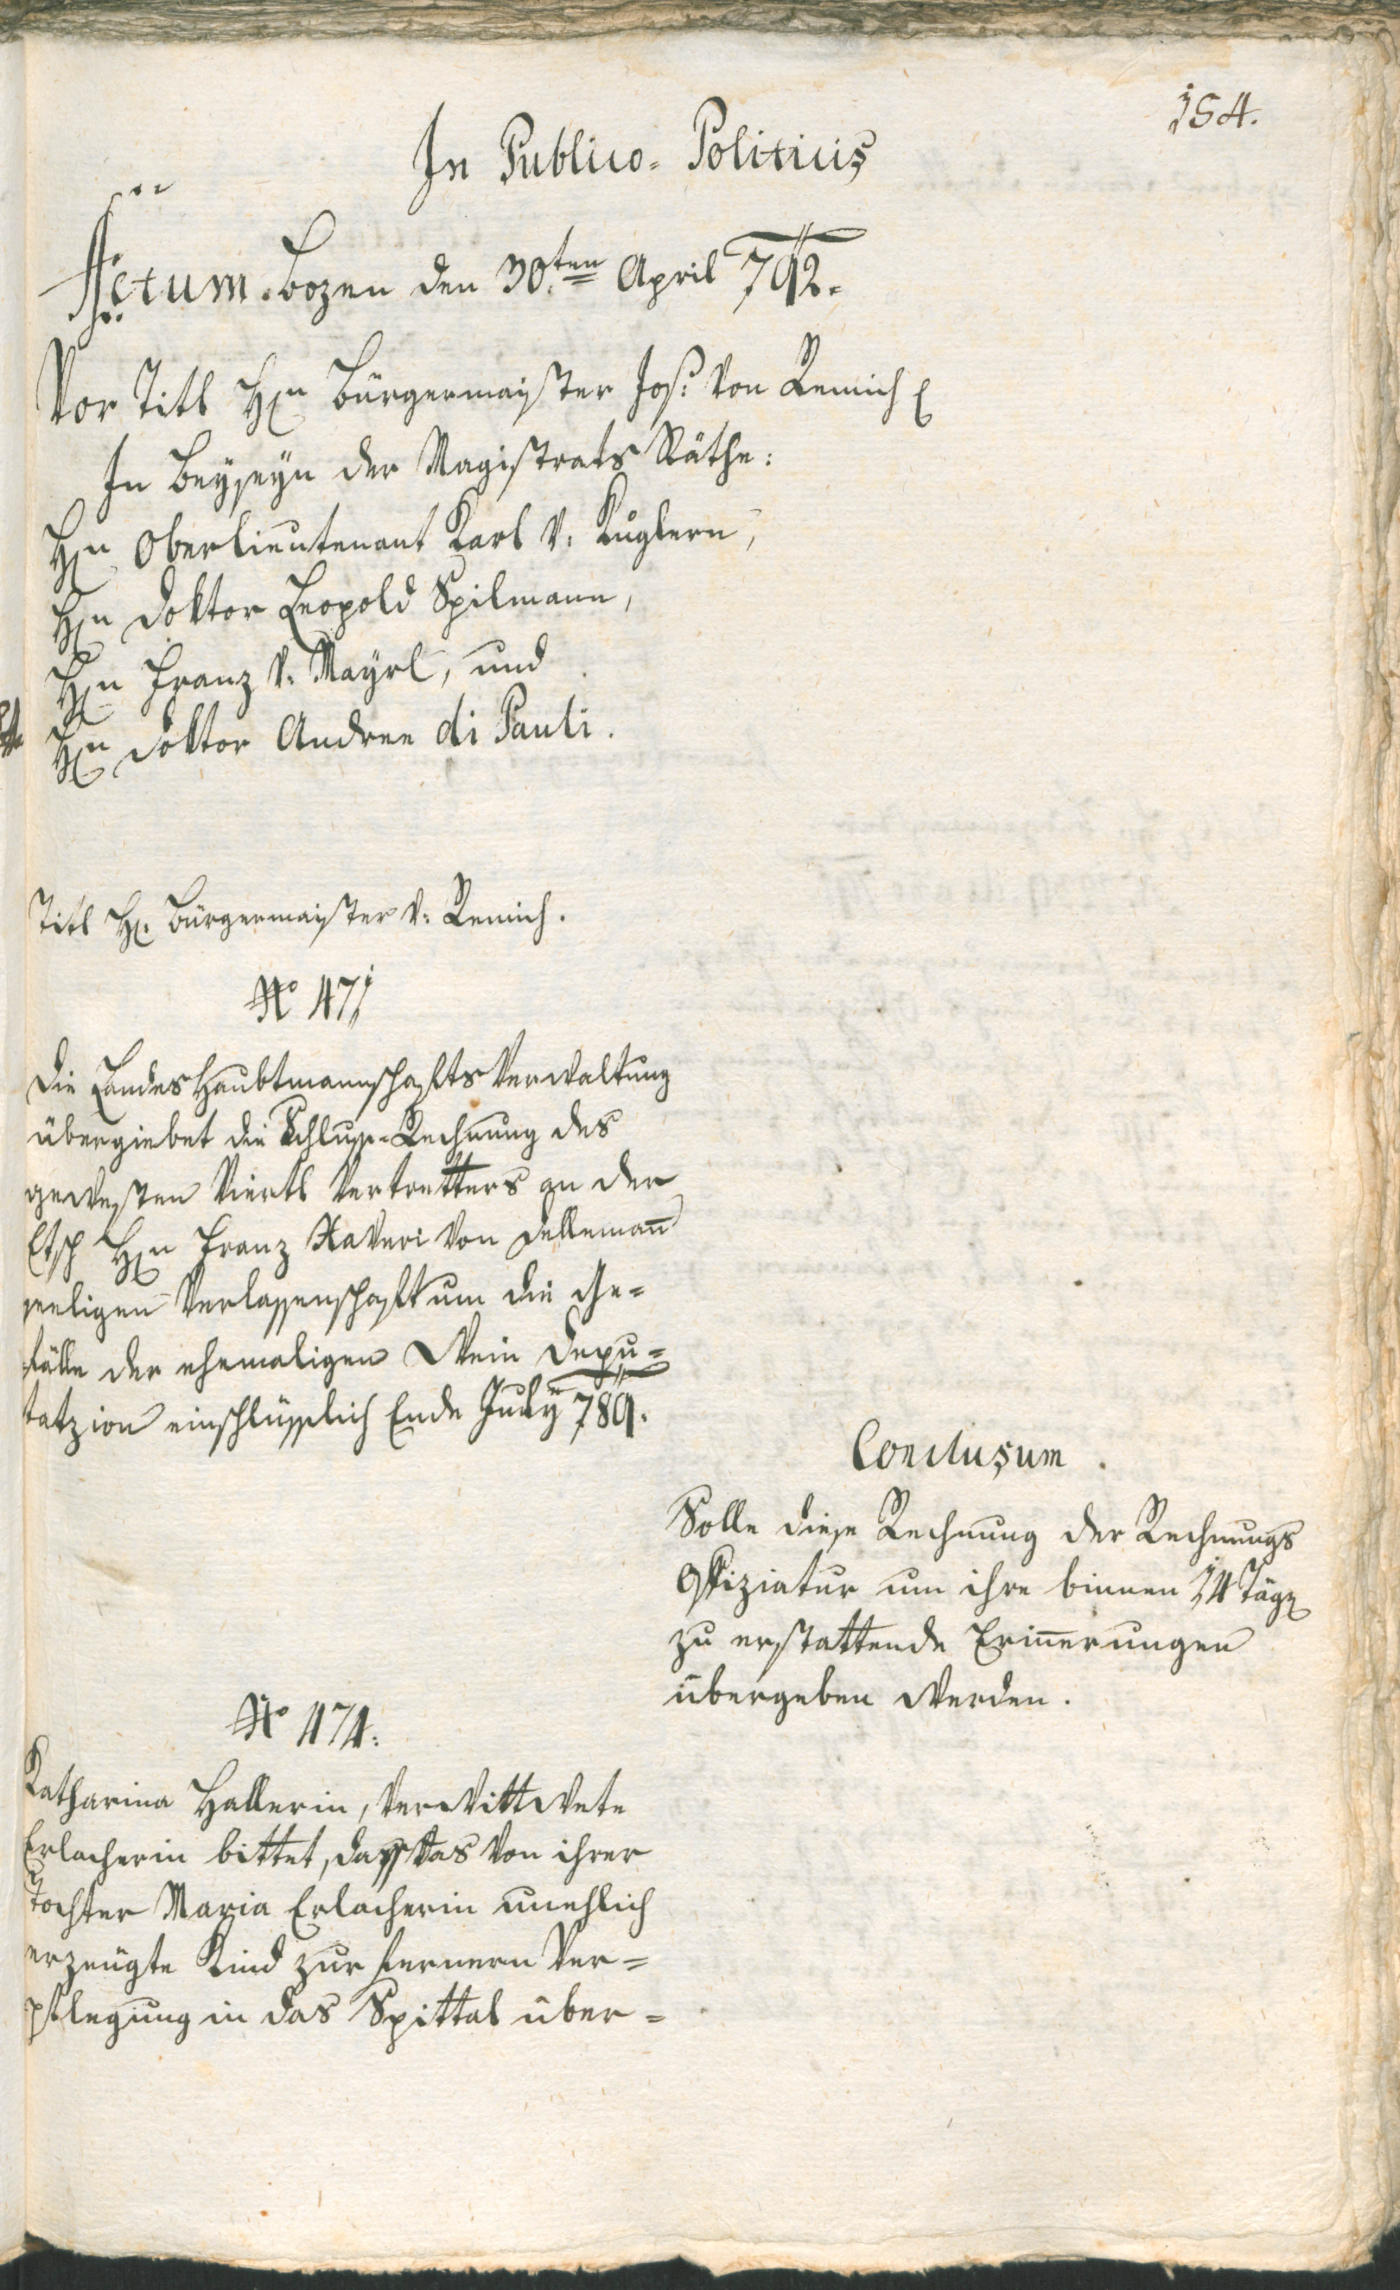 154.
In Publico-Politicis
Actum Bozen den 30.ten April 792.
Vor Titl H(er)n Bürgermaister Jos: von Remich
In Beyseyn der Magistrats Räthe:
Hn Oberlieutenant Karl v: Kuglern,
Hn Doktor Leopold Spilmann,
Hn Franz v: Mayrl, und
Hn Doktor Andree di Pauli.
Titl H: Bürgermaister v: Remich.
No 471
Die LandesHaubtmannschafts Verwaltung
übergiebet die Schluss-Rechnung des
gewesten Viertl Vertretters an der
Etsch Hn Franz Xaveri von Dellemann
seeligen Verlassenschaft um die Ge-
fälle der ehemaligen Wein Depu-
tatzion einschlüsslich Ende July 789.
Conclusum.
Solle diese Rechnung der Rechnungs
Offiziatur um ihre binnen 14 Täg
zu erstattende Erinnerungen
übergeben werden.
No 474.
Katharina Hallerin, verwittwete
Erlacherin bittet, dass das von ihrer
Tochter Maria Erlacherin unehlich
erzeugte Kind zur fernern Ver-
pflegung in das Spittal über-